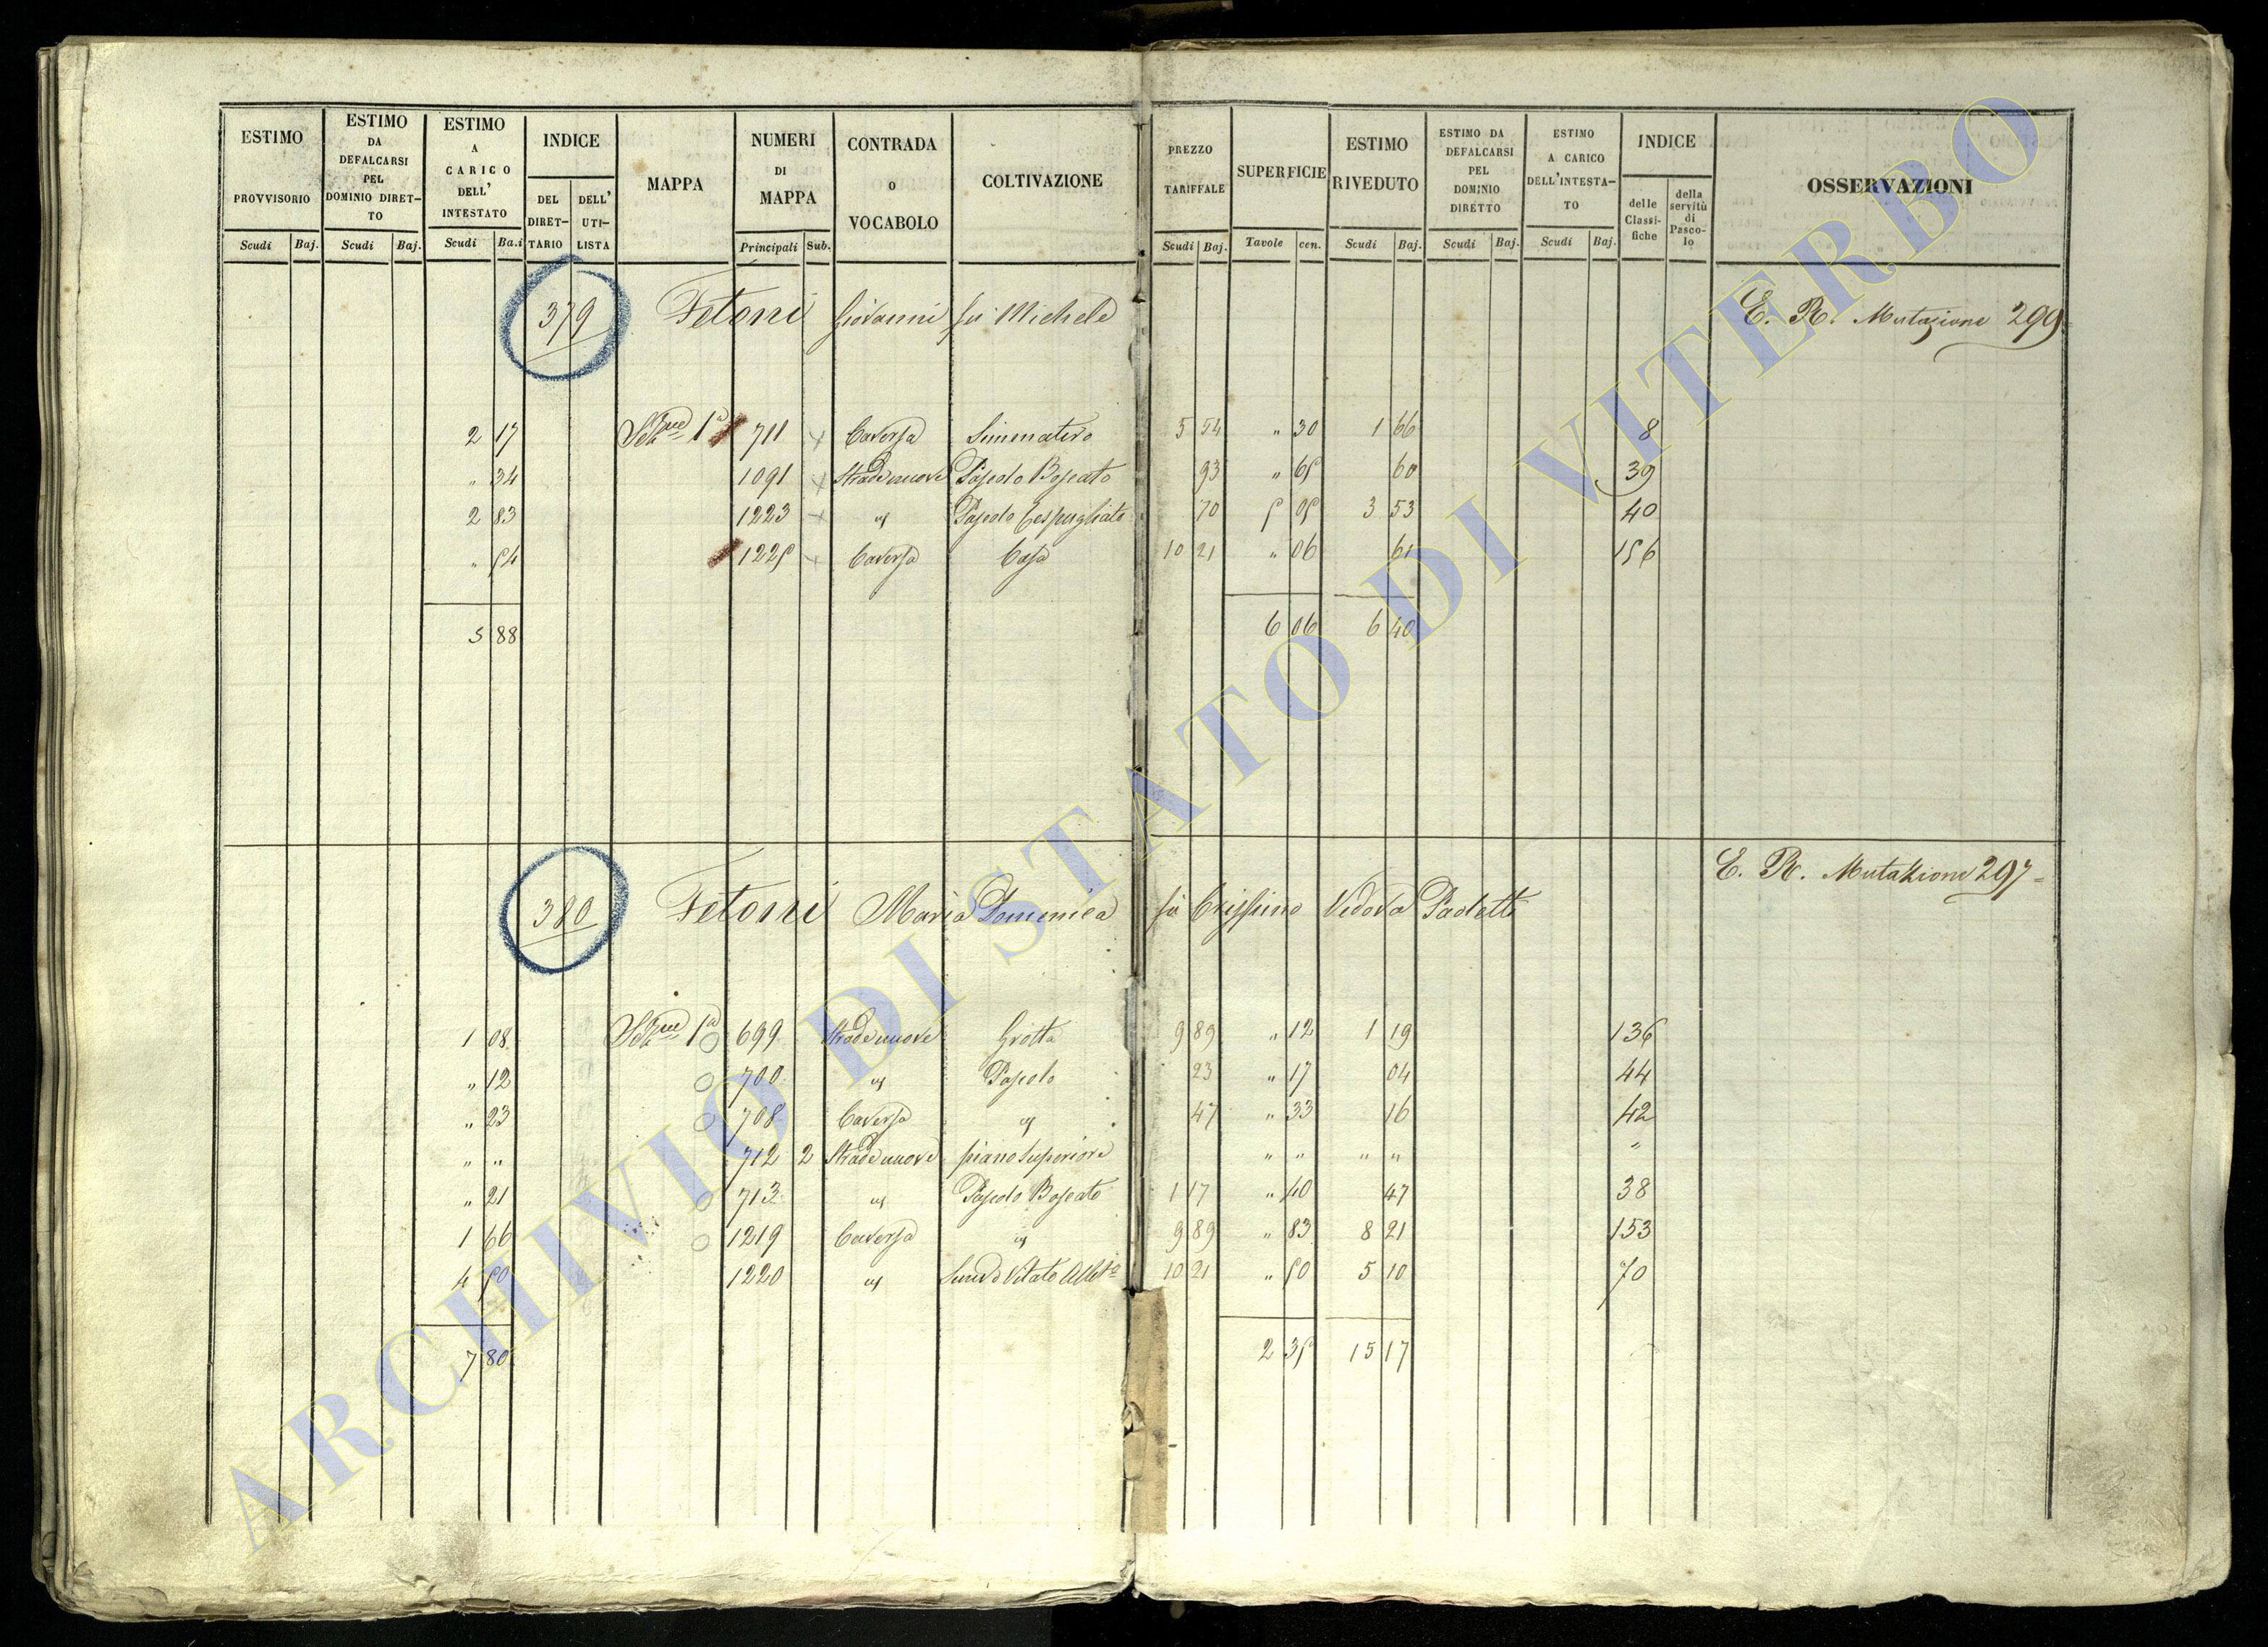 ESTIMO PROVVISORIO Scudi Baj.
ESTIMO DA DEFALCARSI PEL DOMINIO DIRET-TO Scudi Baj.
ESTIMO A CARICO DELL' INTESTATO Scudi Ba.i
INDICE DEL DIRET-TARIO DELL' UTI-LISTA
MAPPA
NUMERI DI MAPPA Principali Sub.
CONTRADA O VOCABOLO
COLTIVAZIONE
PREZZO TARIFFALE Scudi Baj.
SUPERFICIE Tavole cen.
ESTIMO RIVEDUTO Scudi Baj.
ESTIMO DA DEFALCARSI PEL DOMINIO DIRETTO Scudi Baj.
ESTIMO A CARICO DELL'INTESTA-TO Scudi Baj.
INDICE delle Classi-fiche della servitù di Pasco-lo
OSSERVAZIONI
379 Fetoni Giovanni fu Michele E. R. Mutazione 299
2 17 Sez.ne 1a 711 Caversa Seminativo 5 54 " 30 1 66 8
" 34 1091 Strade nuove Pascolo Boscato 93 " 65 60 39
2 83 1223 " Pascolo Cespugliato 70 5 05 3 53 40
" 54 1225 Caversa Casa 10 21 " 06 61 156
5 88 6 06 6 40
380 Fetoni Maria Domenica fu Crispino Vedova Paoletti E. R. Mutazione 297
1 08 Sez.ne 1a 699 Strade nuove Grotta 9 89 " 12 1 19 136
" 12 700 " Pascolo 23 " 17 04 44
" 23 708 Caversa " 47 " 33 16 42
" " 712 2 Strade nuove piano Superiore " " " " "
" 21 713 " Pascolo Boscato 1 17 " 40 47 38
1 66 1219 Caversa " 9 89 " 83 8 21 153
4 50 1220 " Vitato 10 21 " 50 5 10 70
7 80 2 35 15 17
ARCHIVIO DI STATO DI VITERBO